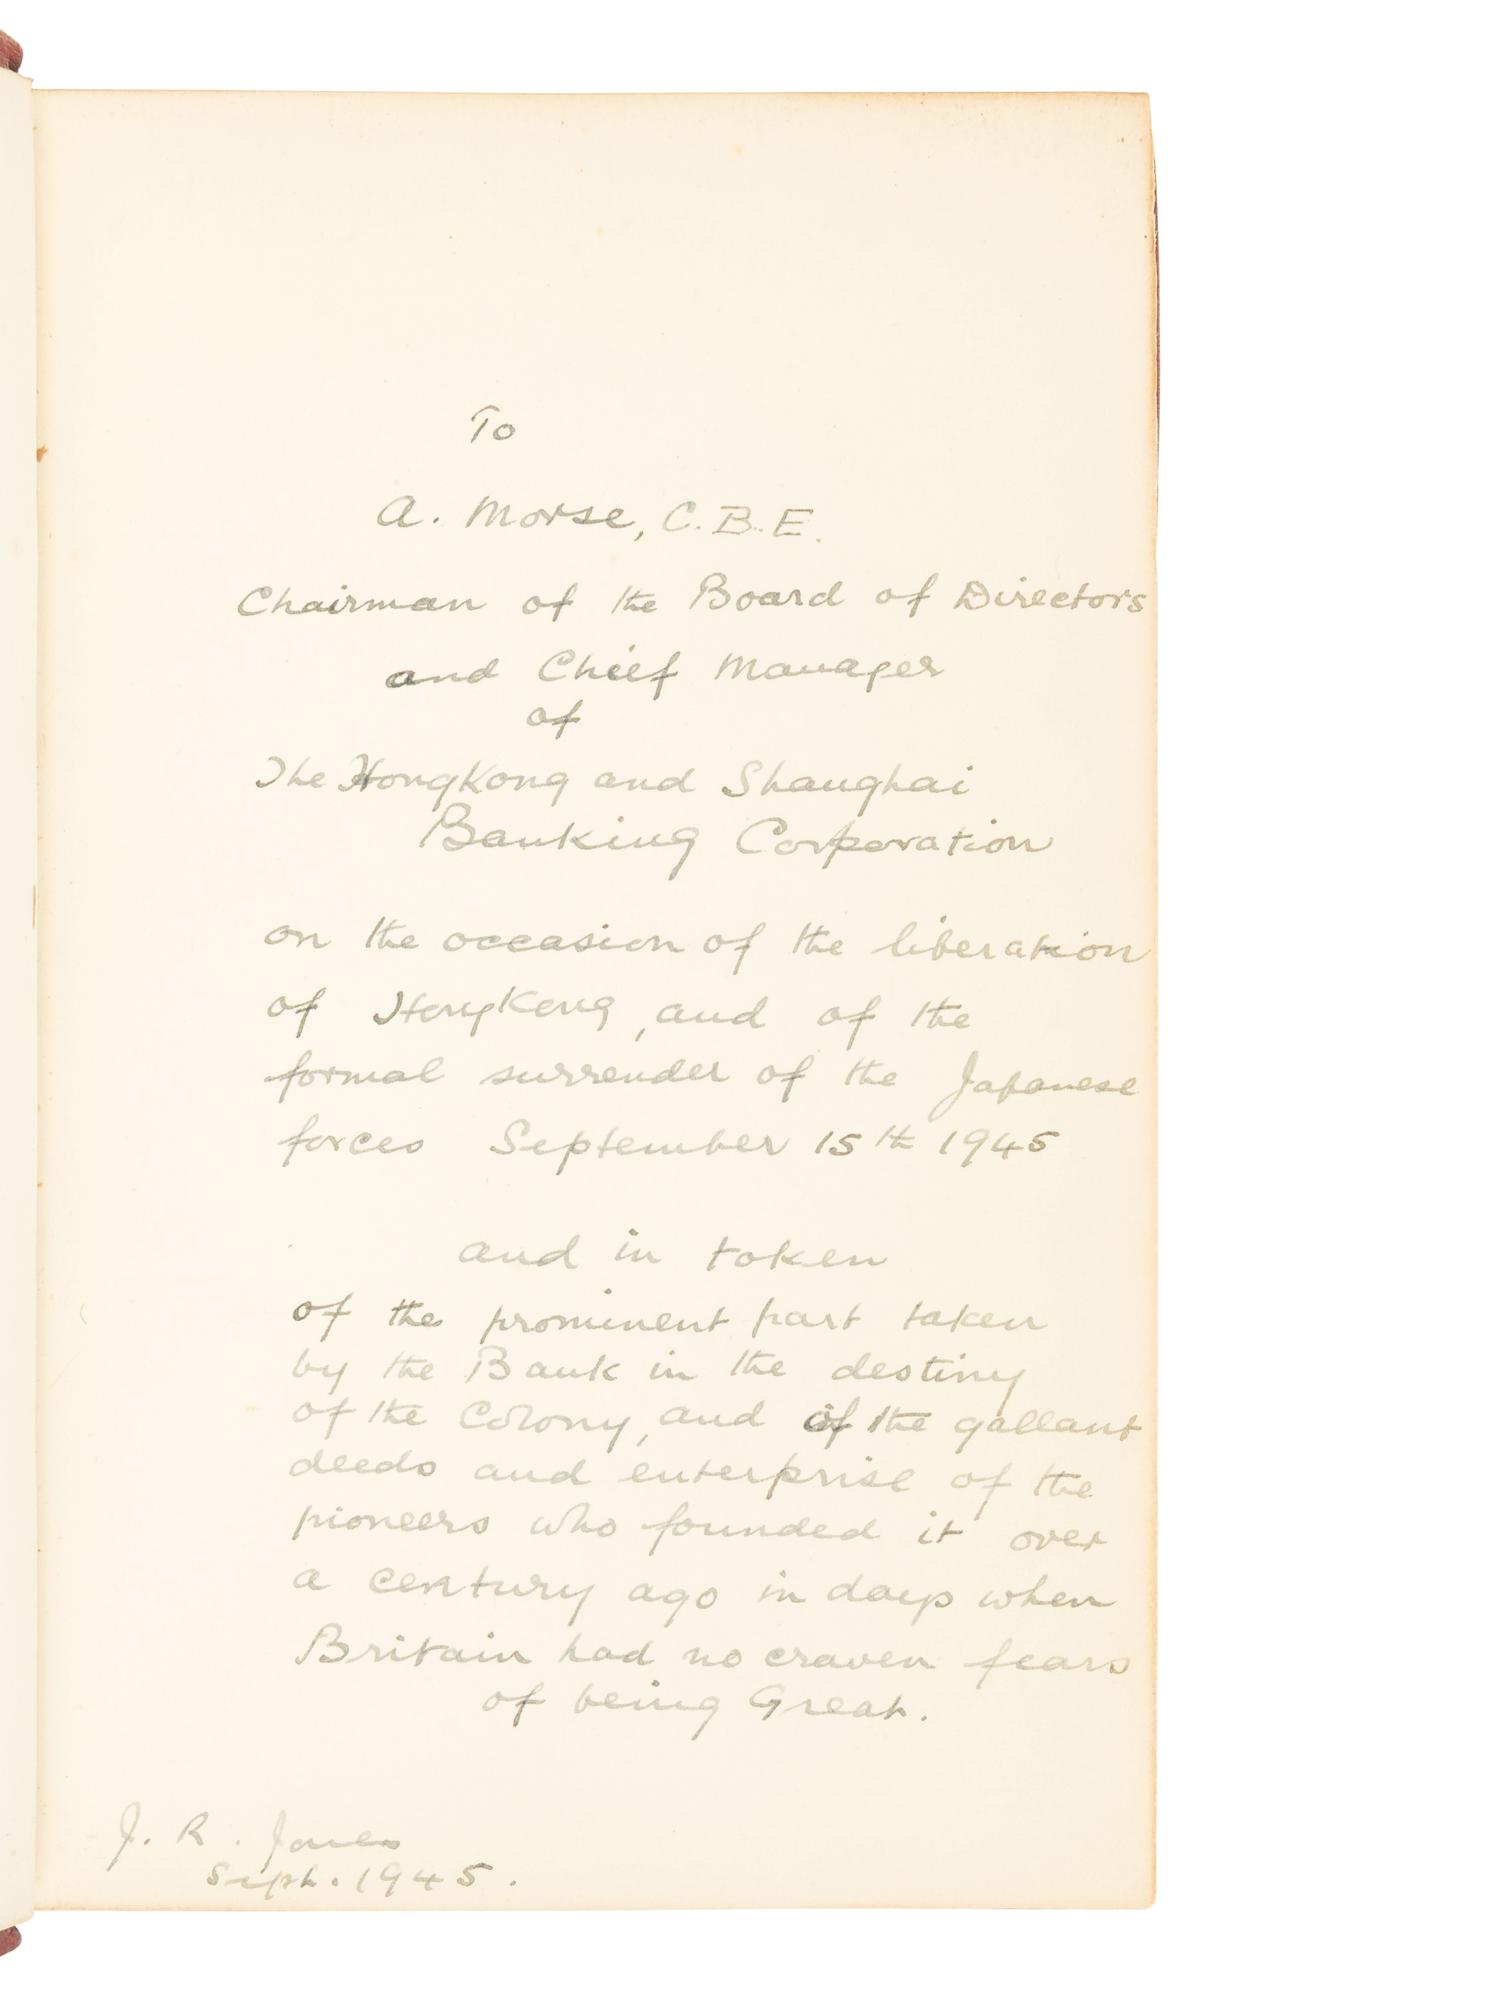 To
A. Morse, C.B.E.
Chairman of the Board of Directors
and Chief Manager
of
The HongKong and Shanghai
Banking Corporation
on the occasion of the liberation
of HongKong, and of the
formal surrender of the Japanese
forces September 15th 1945
and in token
of the prominent part taken
by the Bank in the destiny
of the Colony, and of the gallant
deeds and enterprise of the
pioneers who founded it over
a century ago in days when
Britain had no craven fears
of being Great.
J. R. Jones
Sept. 1945.